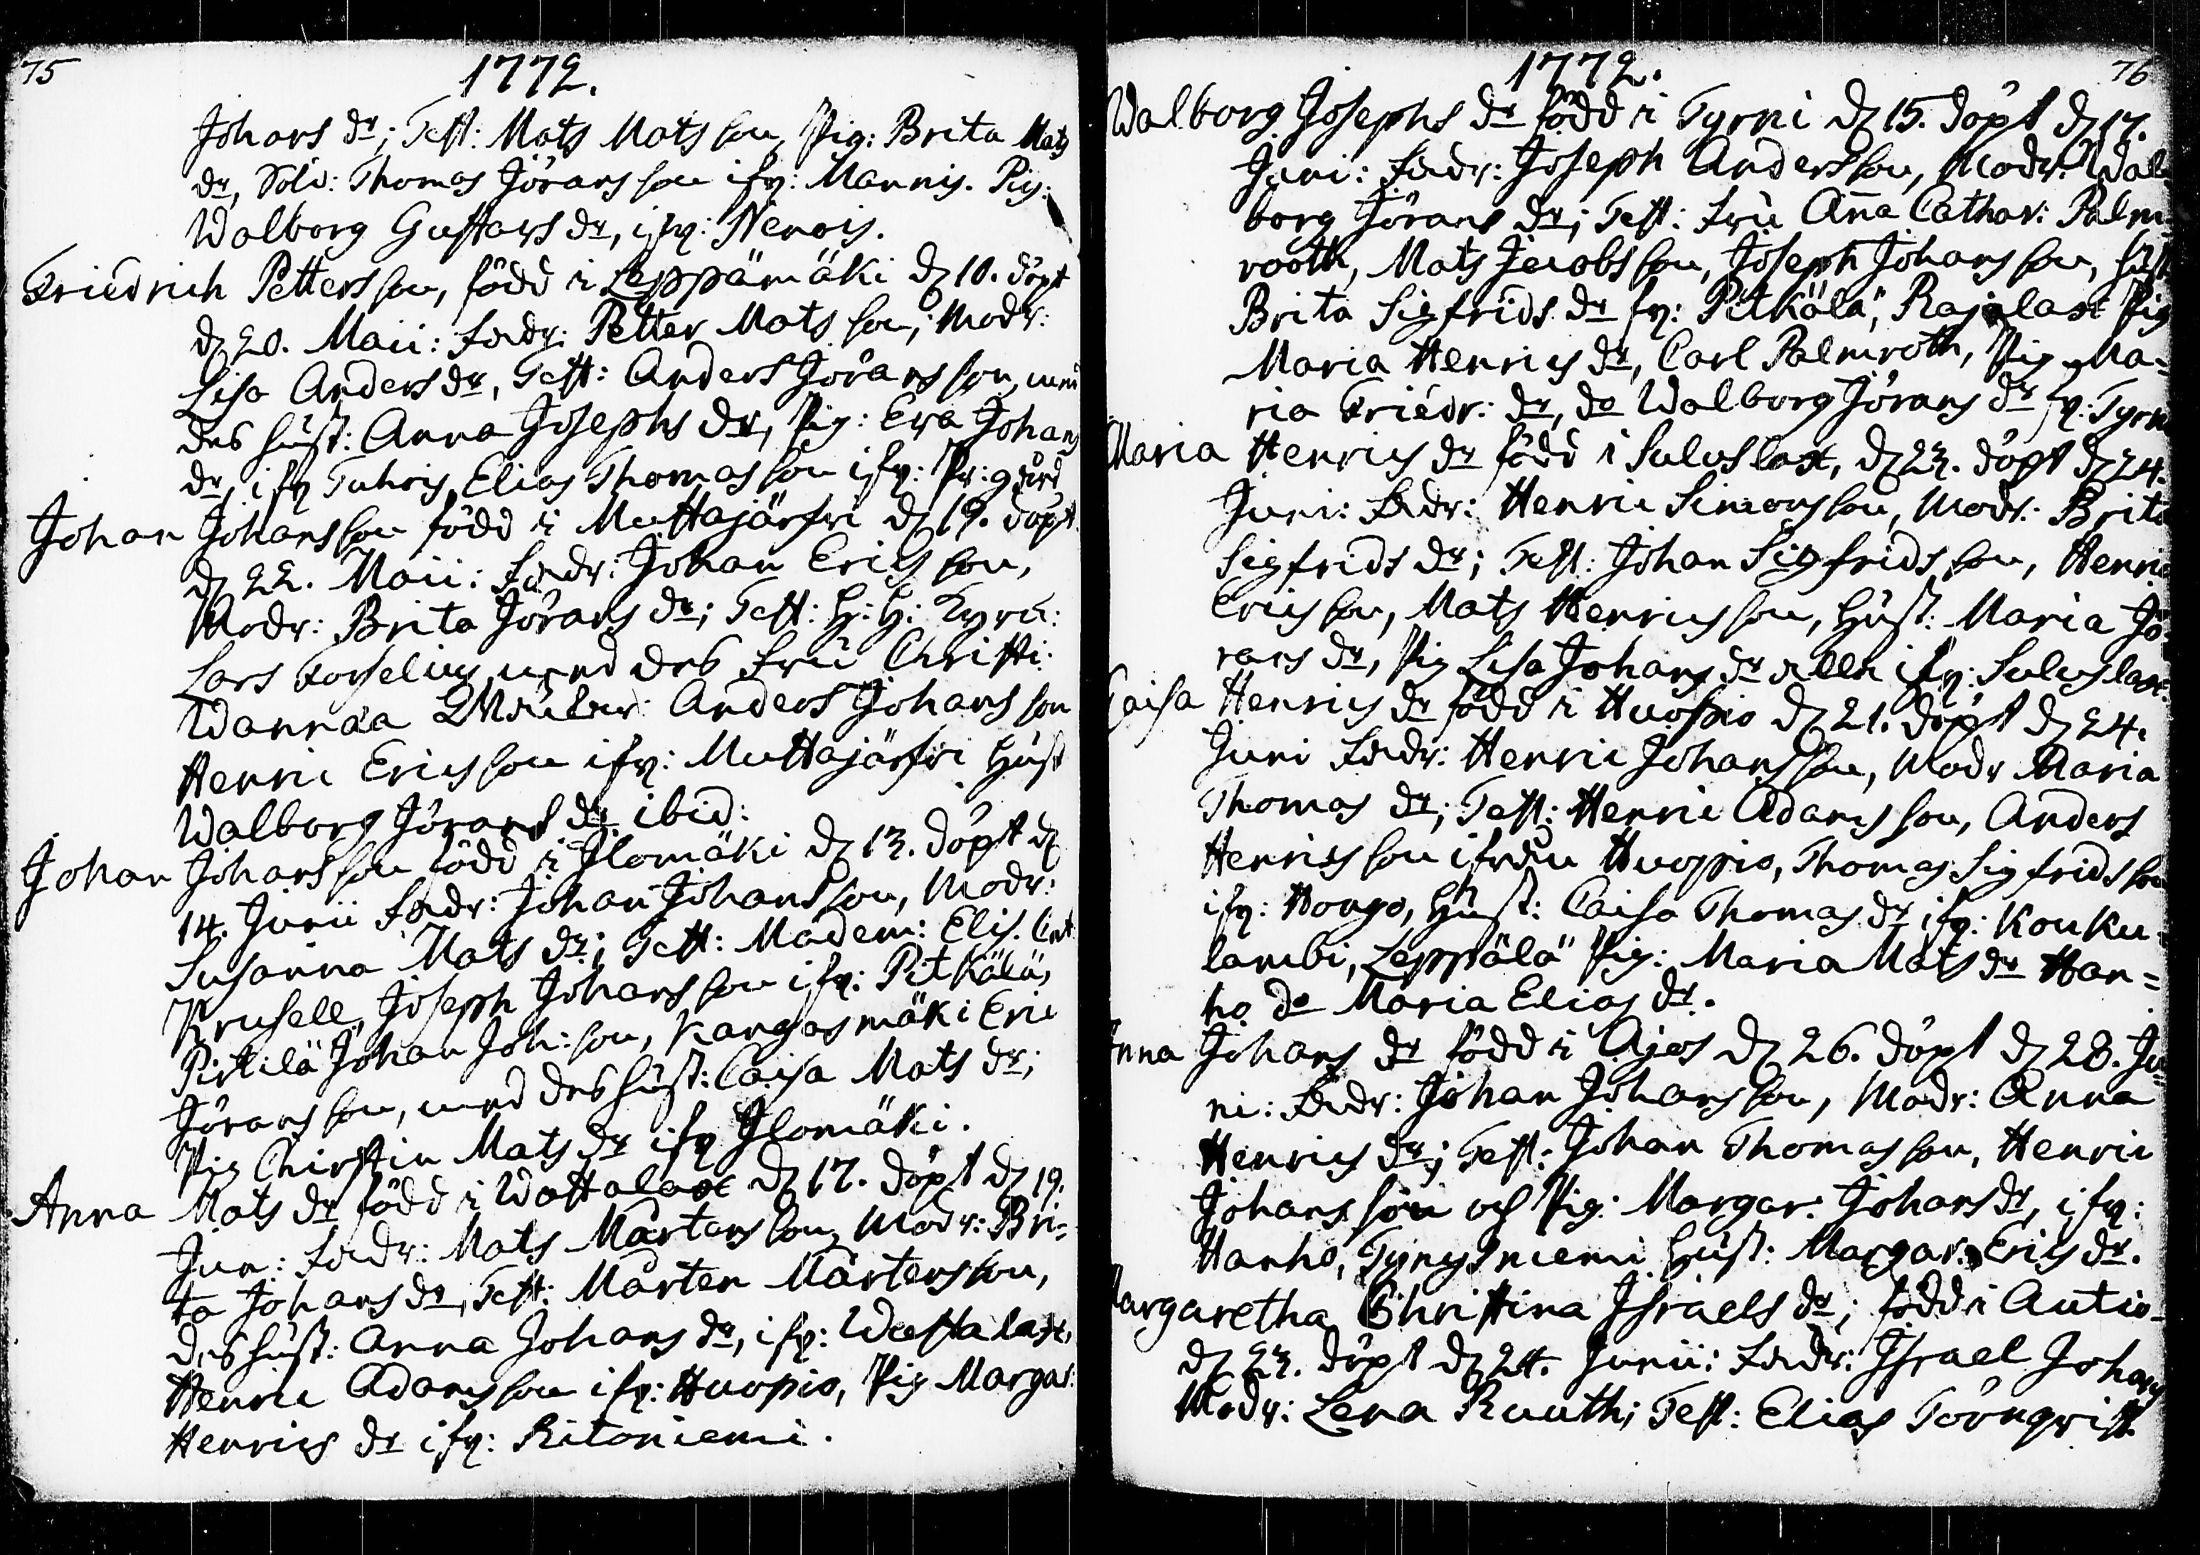 75
1772.
Johans dr; Test: Mats Matsson, Pig: Brita Mats
dr, Sold: Thomas Jöransson ifr: Mannis. Pig:
Walborg Gustavs dr, ifr: Nenois.
Friedrich Pettersson, född i Leppämäki d 18. döpt
d 20. Maii: Fadr: Petter Mats son; Modr:
Lisa Anders dr, Test: Anders Jöransson, med
des hust: Anna Josephs dr, Pig: Eva Johans
dr, ifr Tuhris, Elias Thomasson ifr: Pr:gård
Johan Johansson född i Muttajärfvi d 19. döpt
d 22. Maii: Fadr: Johan Ericsson,
Modr: Brita Jörans dr; Test: H: H: Kyrk:
Lars Forselius med des Fru Christi:
Wannaa Anders Johansson
Henric Ericsson ifr: Muttajärfvi Hust
Walborg Jörans dr ibid:
Johan Johansson född i Ilomäki d 13. döpt d
14. Junii Fadr: Johan Johansson, Modr:
Susanna Mats dr; Test: Madem: Elis. Cat
Krusell, Joseph Johansson ifr: Pitkälä,
Pirtilä Johan Joh:son, Kangasmäki Eric
Jöransson, med des hust: Caisa Mats dr;
Pig Chirstin Mats dr ifr Ilomäki.
Anna Mats dr född i Wattalax d 17. döpt d 19.
Jun: Fadr: Mats Mårtensson, Modr: Bri-
ta Johans dr, Test: Mårten Mårtensson,
des hust: Anna Johans dr, ifr: Wattalax,
Henric Adamsson ifr: Huopio, Pig Margar:
Henrics dr ifr: Ritoniemi.
76
1772.
Walborg Josephs dr född i Tyrni d 15. döpt d 17.
Juni: Fadr: Joseph Andersson, Modr: Wal-
borg Jörans dr; Test: Fru Anna Cathar: Palm-
rooth, Mats Jacobsson, Joseph Johansson, hust
Brita Sigfrids dr fr: Pitkälä, Rajalax Pig
Maria Henrics dr, Carl Palmroth, Pig Ma-
ria Friedr: dr, do Walborg Jörans dr fr: Tyrni
Maria Henrics dr född i Suluslax, d 23. döpt d 24.
Juni: Fadr: Henric Simonsson, Modr: Brita
Sigfrids dr; Test: Johan Sigfridsson, Henric
Ericsson, Mats Henricsson, Hust: Maria Jö-
rans dr, Pig Lisa Johans dr alla ifr: Suluslax.
Caisa Henrics dr född i Huopio d 21. döpt d 24.
Juni Fadr: Henric Johansson, Modr Maria
Thomas dr; Test: Henric Adamsson, Anders
Henricsson ifrån Huopio, Thomas Sigfridsson
ifr: Hongo, Hust: Caisa Thomas dr ifr: Kouku-
lambi, Leppälä Pig: Maria Mats dr Han=
ho do Maria Elias dr.
Anna Johans dr född i Ajos d 26. döpt d 28. Ju-
ni: Fadr: Johan Johansson, Modr: Anna
Henrics dr; Test: Johan Thomasson, Henric
Johansson och Pig: Margar: Johans dr, ifr:
Hanho, Tynysniemi Hust: Margar: Erics dr.
Margaretha Christina Israels dr; född i Autio-
d 23. döpt d 24. Junii: Fadr: Israel Johans
Modr: Lena Ruuth; Test: Elias Törnqvist.